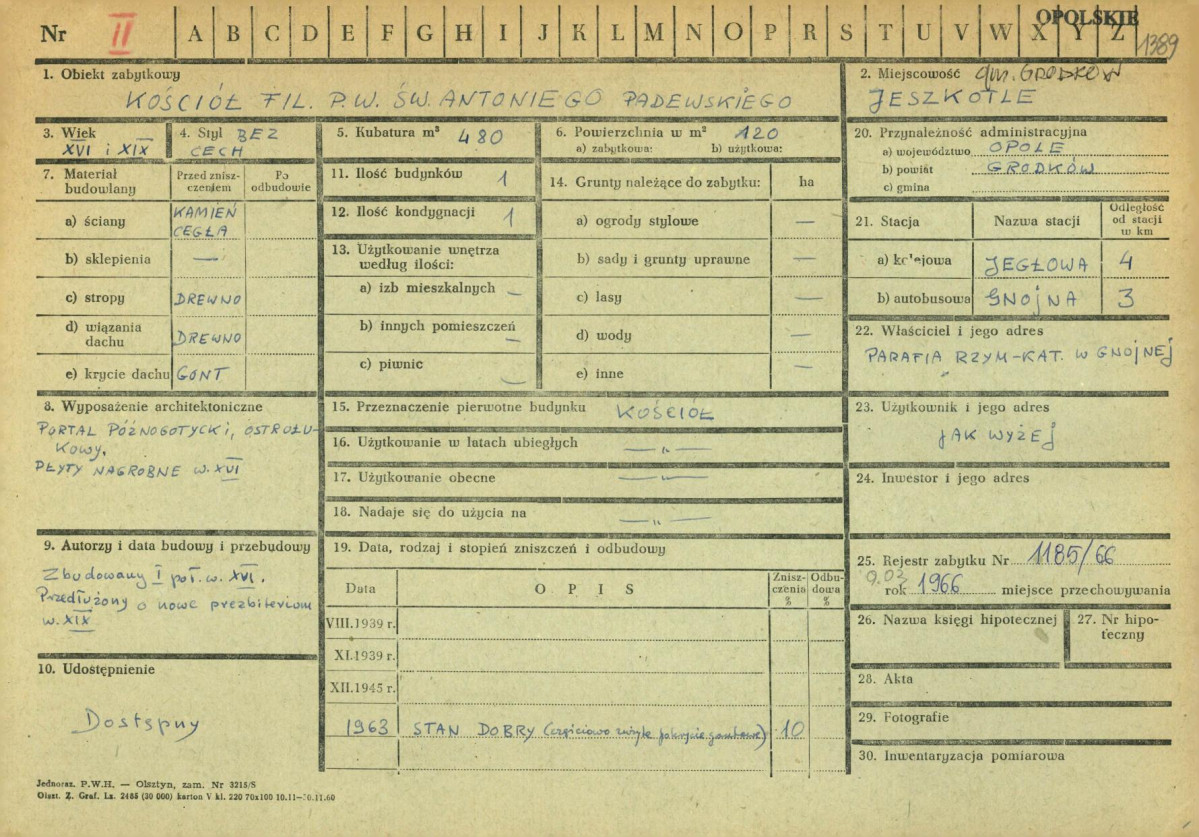 Nr II A B C D E F G H I J K L M N O P R S T U V W X Y Z
OPOLSKIE
1389
1. Obiekt zabytkowy
KOŚCIÓŁ FIL. P.W. ŚW. ANTONIEGO PADEWSKIEGO
2. Miejscowość gm. GRODKÓW
JESZKOTLE
3. Wiek
XVI i XIX
4. Styl BEZ
CECH
5. Kubatura m³ 480
6. Powierzchnia w m² 120
a) zabytkowa: b) użytkowa:
7. Materiał budowlany
Przed zniszczeniem
Po odbudowie
a) ściany KAMIEŃ
CEGŁA
b) sklepienia —
c) stropy DREWNO
d) wiązania dachu DREWNO
e) krycie dachu GONT
8. Wyposażenie architektoniczne
PORTAL PÓŹNOGOTYCKI, OSTROŁU-
KOWY.
PŁYTY NAGROBNE W. XVI
9. Autorzy i data budowy i przebudowy
Zbudowany I poł. w. XVI.
Przedłużony o nowe prezbiterium
w. XIX
10. Udostępnienie
Dostępny
11. Ilość budynków 1
12. Ilość kondygnacji 1
13. Użytkowanie wnętrza
według ilości:
a) izb mieszkalnych —
b) innych pomieszczeń —
c) piwnic —
14. Grunty należące do zabytku: ha
a) ogrody stylowe —
b) sady i grunty uprawne —
c) lasy —
d) wody —
e) inne —
15. Przeznaczenie pierwotne budynku KOŚCIÓŁ
16. Użytkowanie w latach ubiegłych — " —
17. Użytkowanie obecne — " —
18. Nadaje się do użycia na — " —
19. Data, rodzaj i stopień zniszczeń i odbudowy
Data OPIS Zniszczenia % Odbudowa %
VIII.1939 r.
XI.1939 r.
XII.1945 r.
1963 STAN DOBRY (częściowo zużyte pokrycie gontowe) 10
20. Przynależność administracyjna
a) województwo OPOLE
b) powiat GRODKÓW
c) gmina
21. Stacja Nazwa stacji Odległość od stacji w km
a) kolejowa JEGŁOWA 4
b) autobusowa GNOJNA 3
22. Właściciel i jego adres
PARAFIA RZYM-KAT. W GNOJNEJ
23. Użytkownik i jego adres
JAK WYŻEJ
24. Inwestor i jego adres
25. Rejestr zabytku Nr 1185/66
9.03
rok 1966 miejsce przechowywania
26. Nazwa księgi hipotecznej
27. Nr hipo-
teczny
28. Akta
29. Fotografie
30. Inwentaryzacja pomiarowa
Jednoraz. P.W.H. — Olsztyn, zam. Nr 3215/S
Olszt. Z. Graf. Lz. 2485 (30 000) karton V kl. 220 70x100 10.11—30.11.60